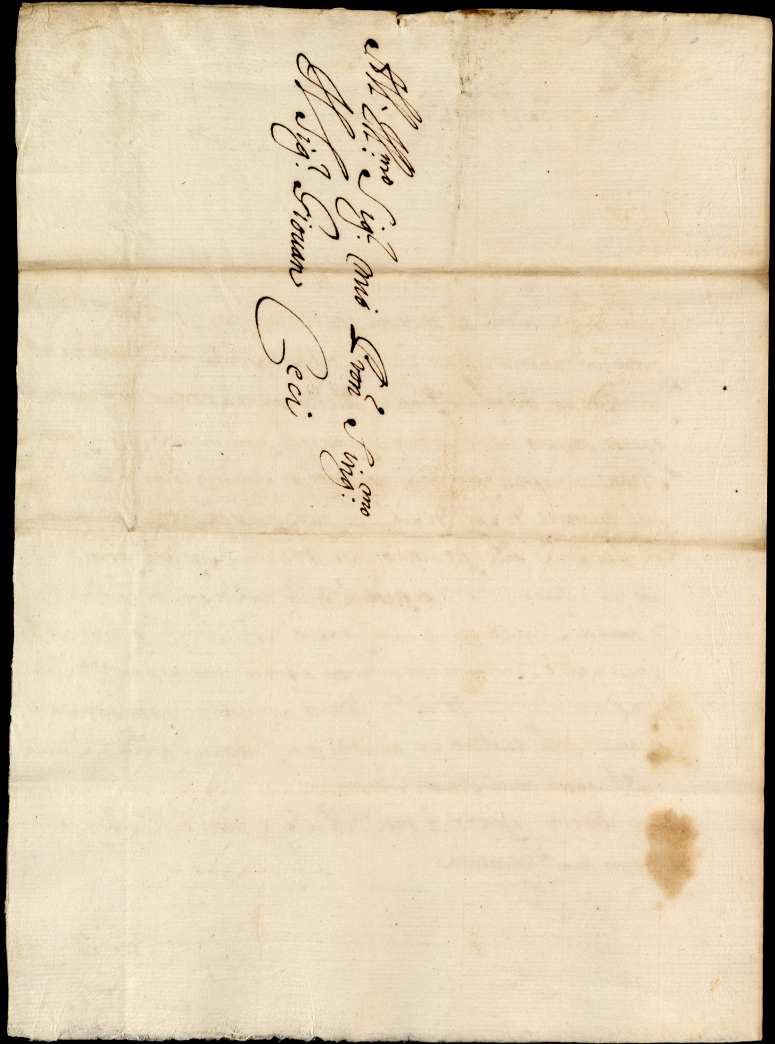 All Ill.mo Sig.r mio P͠ron Sing.mo
Il Sig.r Giouan Ceci